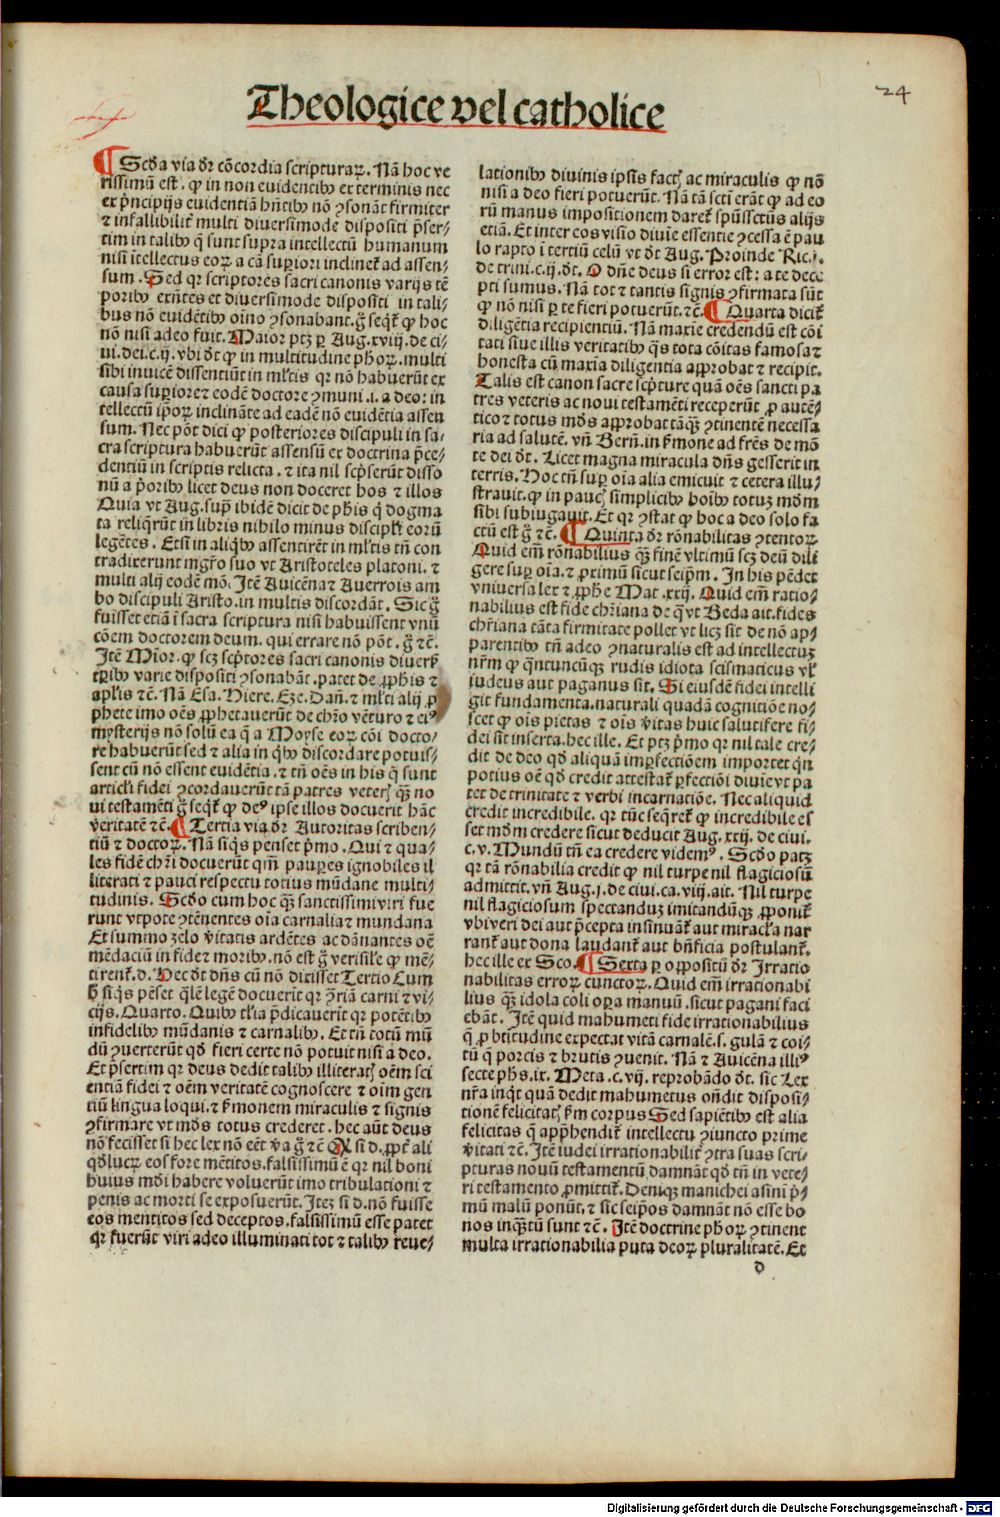 24
Theologice vel catholice
¶ Scđa via dr̄ cōcordia scripturaꝝ. Nā hoc ve
rissimū est. ꝙ in non euidentibꝰ ex terminis nec
ex p̄ncipijs euidentiā hn̄tibꝰ nō ꝯsonāt firmiter
⁊ infallibilit̄ multi diuersimode dispositi p̄ser/
tim in talibꝰ q̄ sunt supra intellectū humanum
nisi ītellectus eoꝝ a cā suꝑiori inclinet̄ ad assen/
sum. Sed qꝛ scriptores sacri canonis varijs tē
poribꝰ exn̄tes et diuersimode dispositi in tali/
bus nō euidētibꝰ oīno ꝯsonabant. g̊ seqt̄ ꝙ hoc
nō nisi a deo fuit. Maior ptꝫ ꝑ Aug. xviij. de ci/
ui. dei. c. ij. vbi dt̄ ꝙ in multitudine ph̄oꝝ. multi
sibi inuicē dissentiūt in ml̄tis qꝛ nō habuerūt ex
causa suꝑiore ⁊ eodē doctore ꝯmuni .i. a deo: in
tellectū ip̄oꝝ inclināte ad eadē nō euidētia assen
sum. Nec pōt dici ꝙ posteriores discipuli in sa/
cra scriptura habuerūt assensū ex doctrina p̄ce/
dentiū in scriptis relicta. ⁊ ita nil scp̄serūt disso
nū a p̄oribꝰ licet deus non doceret hos ⁊ illos
Quia vt Aug. sup̄ ibidē dicit de ph̄is q̄ dogma
ta reliq̄rūt in libris nihilo minus discipl̄i eorū
legētes. Etsi in aliqbꝰ assentirēt in ml̄tis tn̄ con
tradixerunt mḡro suo vt Aristoteles platoni. ⁊
multi alij eodē mō. Itē Auicēna ⁊ Auerrois am
bo discipuli Aristo. in multis discordāt. Sic g̊
fuisset etiā ī sacra scriptura nisi habuissent vnū
cōem doctorem deum. qui errare nō pōt. g̊ ⁊c̄.
Itē Mior. ꝙ scꝫ scp̄tores sacri canonis diuers̄
tꝑibꝰ varie dispositi ꝯsonabāt. patet de ꝓphis ⁊
apl̄is ⁊c̄. Nā Esa. Hiere. Eze. Dan̄. ⁊ ml̄ti alij ꝓ
phete imo oēs ꝓphetauerūt de chr̄o vēturo ⁊ eiꝰ
mysterijs nō solū ea q̄ a Moyse eoꝝ cōi docto/
re habuerūt sed ⁊ alia in qbꝰ discordare potuis/
sent cū nō essent euidētia. ⁊ tn̄ oēs in his q̄ sunt
articl̄i fidei ꝯcordauerūt tā patres veteris̄ qꝫ no
ui testamēti g̊ seqt̄ ꝙ deꝰ ipse illos docuerit hāc
veritatē ⁊c̄. ¶ Tertia via dr̄ Autoritas scriben/
tiū ⁊ doctoꝝ. Nā siqs penset p̄mo. Qui ⁊ qua/
les fidē chr̄i docuerūt qm̄ pauꝑes ignobiles il
literati ⁊ pauci respectu totius mūdane multi/
tudinis. Scđo cum hoc qꝫ sanctissimi viri fue
runt vtpote ꝯtēnentes oīa carnalia ⁊ mundana
Et summo zelo v̄itatis ardētes ac dānantes oē
mēdaciū in fide ⁊ moribꝰ. nō est g̊ verisil̄e ꝙ mē/
tirent̄. d. Hec dt̄ dn̄s cū nō dixisset Tertio Cum
h̄ siqs pēset q̄lē legē docuerit qꝛ ꝯ̄riā carni ⁊ vi/
cijs. Quarto. Quibꝰ tl̄ia p̄dicauerit qꝛ potētibꝰ
infidelibꝰ mūdanis ⁊ carnalibꝰ. Et tn̄ totū mū
dū ꝯuerterūt qđ fieri certe nō potuit nisi a deo.
Et p̄sertim qꝛ deus dedit talibꝰ illiteratis̄ oēm sci
entiā fidei ⁊ oēm veritatē cognoscere ⁊ oīm gen
tiū lingua loqui. ⁊ s̄monem miraculis ⁊ signis
ꝯfirmare vt mđs totus crederet. hec aūt deus
nō fecisset si hec lex nō eēt v̄a g̊ ⁊c̄ Qꝛ si d. ꝓpt̄ ali
qđ lucꝝ eos fore mētitos. falsissimū ē qꝛ nil boni
huius mđi habere voluerūt imo tribulationi ⁊
penis ac morti se exposuerūt. Iteꝫ si d. nō fuisse
eos mentitos sed deceptos. falsissimū esse patet
qꝛ fuerūt viri adeo illuminati tot ⁊ talibꝰ reue/
lationibꝰ diuinis ipsis factis̄ ac miraculis ꝙ nō
nisi a deo fieri potuerūt. Nā tā sctī erāt ꝙ ad eo
rū manus impositionem daret̄ spūssctūs alijs
etiā. Et inter eos visio diuīe essentie ꝯcessa ē pau
lo rapto ī tertiū celū vt dt̄ Aug. Proinde Ric. j.
de trini. c. ij. dt̄. O dn̄e deus si error est: a te dece
pti sumus. Nā tot ⁊ tantis signis ꝯfirmata sūt
ꝙ nō nisi ꝑ te fieri potuerūt. ⁊c̄. ¶ Quarta dicit̄
diligētia recipientiū. Nā maxie credendū est cōi
tati siue illis veritatibꝰ q̄s tota cōitas famosa ⁊
honesta cū maxīa diligentia approbat ⁊ recipit.
Talis est canon sacre scp̄ture quā oēs sancti pa
tres veteris ac noui testamēti receperūt ꝓ autē/
tico ⁊ totus mđs approbat tāqꝫ ꝯtinentē necessa
ria ad salutē. vn̄ Bern̄. in s̄mone ad fr̄es de mō
te dei dt̄. Licet magna miracula dn̄s gesserit in
terris. Hoc tn̄ suꝑ oīa alia emicuit ⁊ cetera illu/
strauit. ꝙ in paucis̄ simplicibꝰ hoībꝰ totuꝫ mđm
sibi subiugauit. Et qꝛ ꝯstat ꝙ hoc a deo solo fa
ctū est g̊ ⁊c̄. ¶ Quinta dr̄ rōnabilitas ꝯtentoꝝ.
Quid em̄ rōnabilius qꝫ finē vltimū scꝫ deū dili
gere suꝑ oīa. ⁊ ꝓximū sicut seip̄m. In his pēdet
vniuersa lex ⁊ ꝓphe Mat. xxij. Quid em̄ ratio/
nabilius est fide chr̄iana de q̄ vt Beda ait. fides
chr̄iana tāta firmitate pollet vt licꝫ sit de nō ap/
parentibꝰ tn̄ adeo ꝯnaturalis est ad intellectuꝫ
nr̄m ꝙ qn̄tuncūqꝫ rudis idiota scismaticus vl̄
iudeus aut paganus sit. Si eiusdē fidei intelli
git fundamenta. naturali quadā cognitiōe no/
scet ꝙ oīs pietas ⁊ oīs v̄itas huic salutifere fi/
dei sit inserta. hec ille. Et ptꝫ p̄mo qꝛ nil tale cre/
dit de deo qđ aliquā imꝑfectiōem importet qn̄
potius oē qđ credit attestat̄ ꝑfectiōi diuīe vt pa
tet de trinitate ⁊ verbi incarnatiōe. Nec aliquid
credit incredibile. qꝛ tūc seq̄ret̄ ꝙ incredibile es
set mđm credere sicut deducit Aug. xxij. de ciui.
c. v. Mundū tn̄ ea credere videmꝰ. Scđo patꝫ
qꝛ tā rōnabilia credit ꝙ nil turpe nil flagiciosū
admittit. vn̄ Aug. j. de ciui. ca. viij. ait. Nil turpe
nil flagiciosum spectanduꝫ imitandūqꝫ ꝓponit̄
vbi veri dei aut p̄cepta insinuāt̄ aut miracl̄a nar
rant̄ aut dona laudant̄ aut bn̄ficia postulant̄.
hec ille ex Sco. ¶ Sexta ꝑ oppositū dr̄ Irratio
nabilitas erroꝝ cunctoꝝ. Quid em̄ irrationabi
lius qꝫ idola coli oꝑa manuū. sicut pagani faci
ebāt. Itē quid mahumeti fide irrationabilius
q̄ ꝓ btītudine expectat vitā carnalē. s. gulā ⁊ coi/
tū q̄ porcis ⁊ brutis ꝯuenit. Nā ⁊ Auicēna illiꝰ
secte ph̄s. ix. Meta. c. vij. reprobādo dt̄. sic Lex
nr̄a inqt̄ quā dedit mahumetus on̄dit disposi/
tionē felicitatis̄ s̄m corpus Sed sapiētibꝰ est alia
felicitas q̄ app̄hendit̄ intellectu ꝯiuncto prime
v̄itati ⁊c̄. Itē iudei irrationabilit̄ ꝯtra suas scri/
pturas nouū testamentū damnāt qđ tn̄ in vete/
ri testamento ꝓmittit̄. Deniqꝫ manichei asini p̄/
mū malū ponūt. ⁊ sic seip̄os damnāt nō esse bo
nos inqꝫtū sunt ⁊c̄. Itē doctrine ph̄oꝝ ꝯtinent
multa irrationabilia puta deoꝝ pluralitatē. Et
d
Digitalisierung gefördert durch die Deutsche Forschungsgemeinschaft - DFG